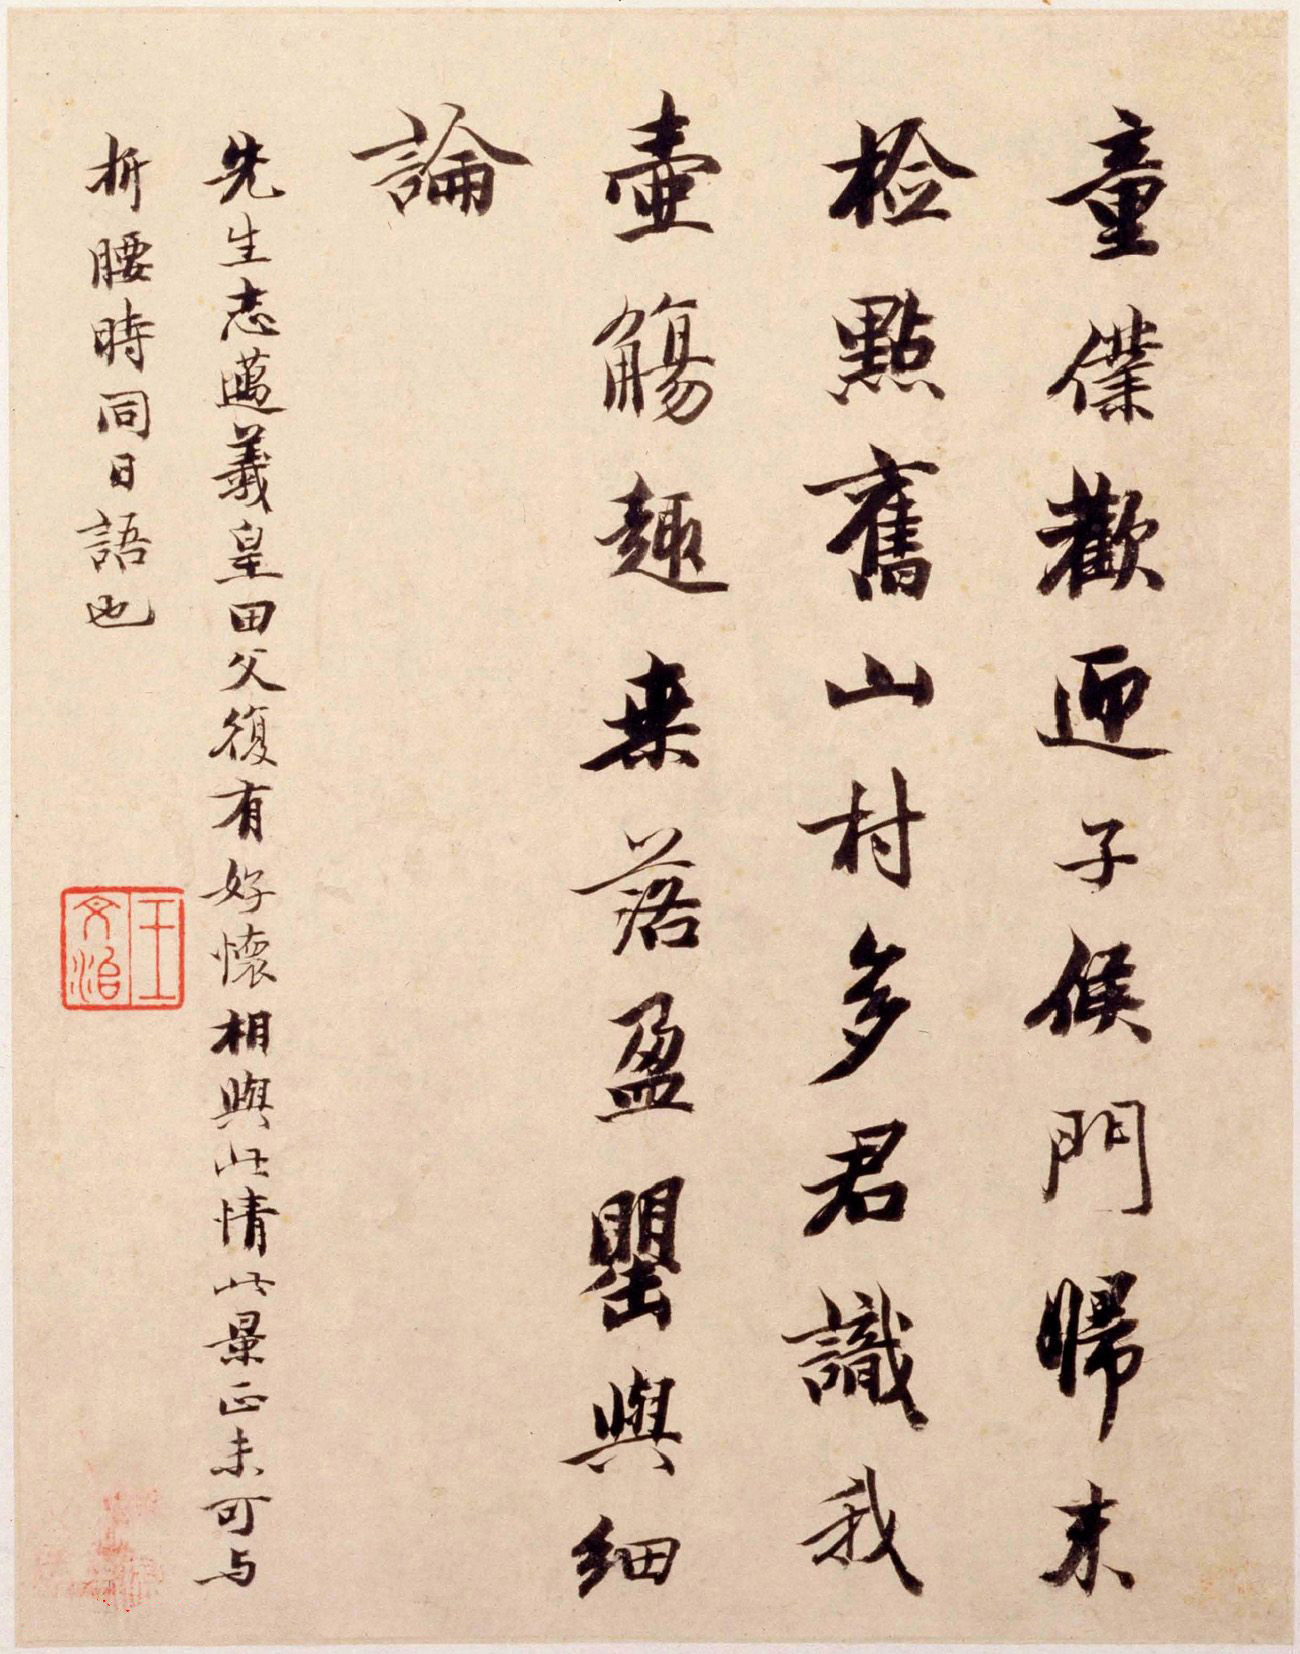 童僕歡迎子候門歸来
檢點舊山村多君識我
壺觴趣桒落盈罌與細
論
先生志邁羲皇田父復有好懷相與此情此景正未可与
折腰時同日語也
王文治